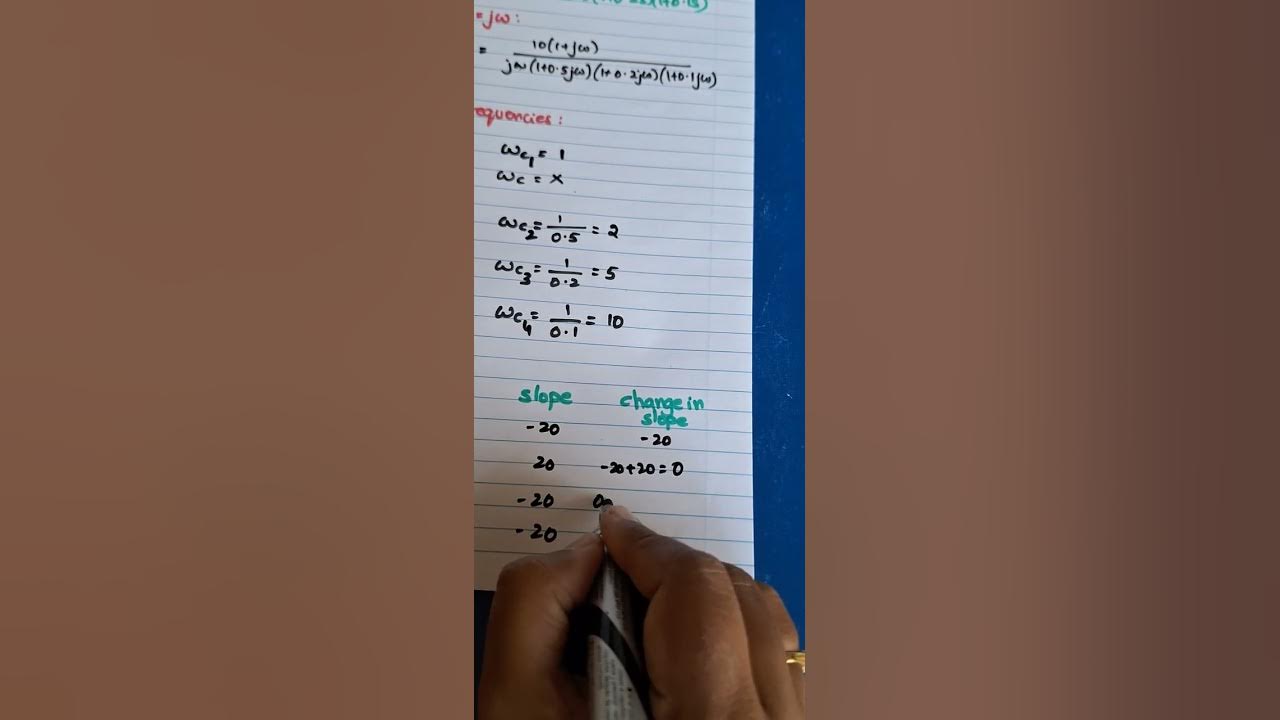 = jω:
= 10(1+jω)
jω(1+0.5jω)(1+0.2jω)(1+0.1jω)
equencies:
ωc1 = 1
ωc = ×
ωc2 = 1/0.5 = 2
ωc3 = 1/0.2 = 5
ωc4 = 1/0.1 = 10
slope change in slope
-20 -20
20 -20+20=0
-20 0
-20